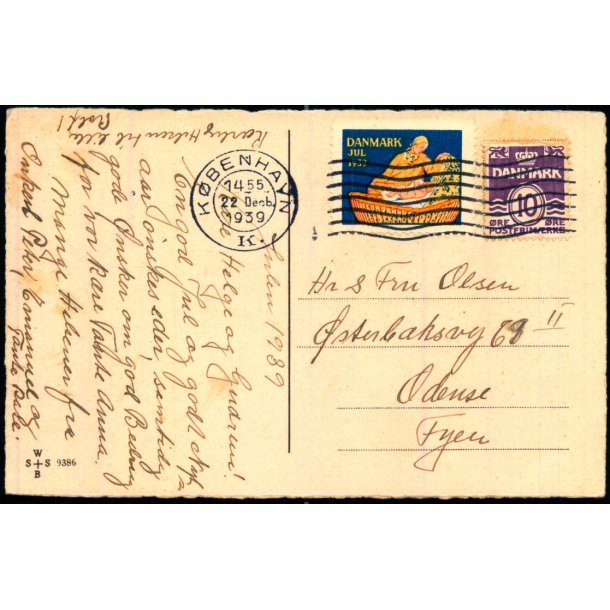 Kærlig Hilsen til lille
Julen 1939
Kære Helge og Gudrun!
En god Jul og godt Nyt-
aar ønskes eder, samtidig
gode Ønsker om god Bedring
for vor kære Tante Anna.
Mange Hilsener fra
Onkel Petr, Emanuel og
Tante
KØBENHAVN
1455
22 Decb.
1939
K.
DANMARK
JUL
1939
DANMARK
10
ØRE ØRE
POSTFRIMÆRKE
Hr & Fru Olsen
Østerbaksvej 69 II
Odense
Fyen
W
S+S 9386
B